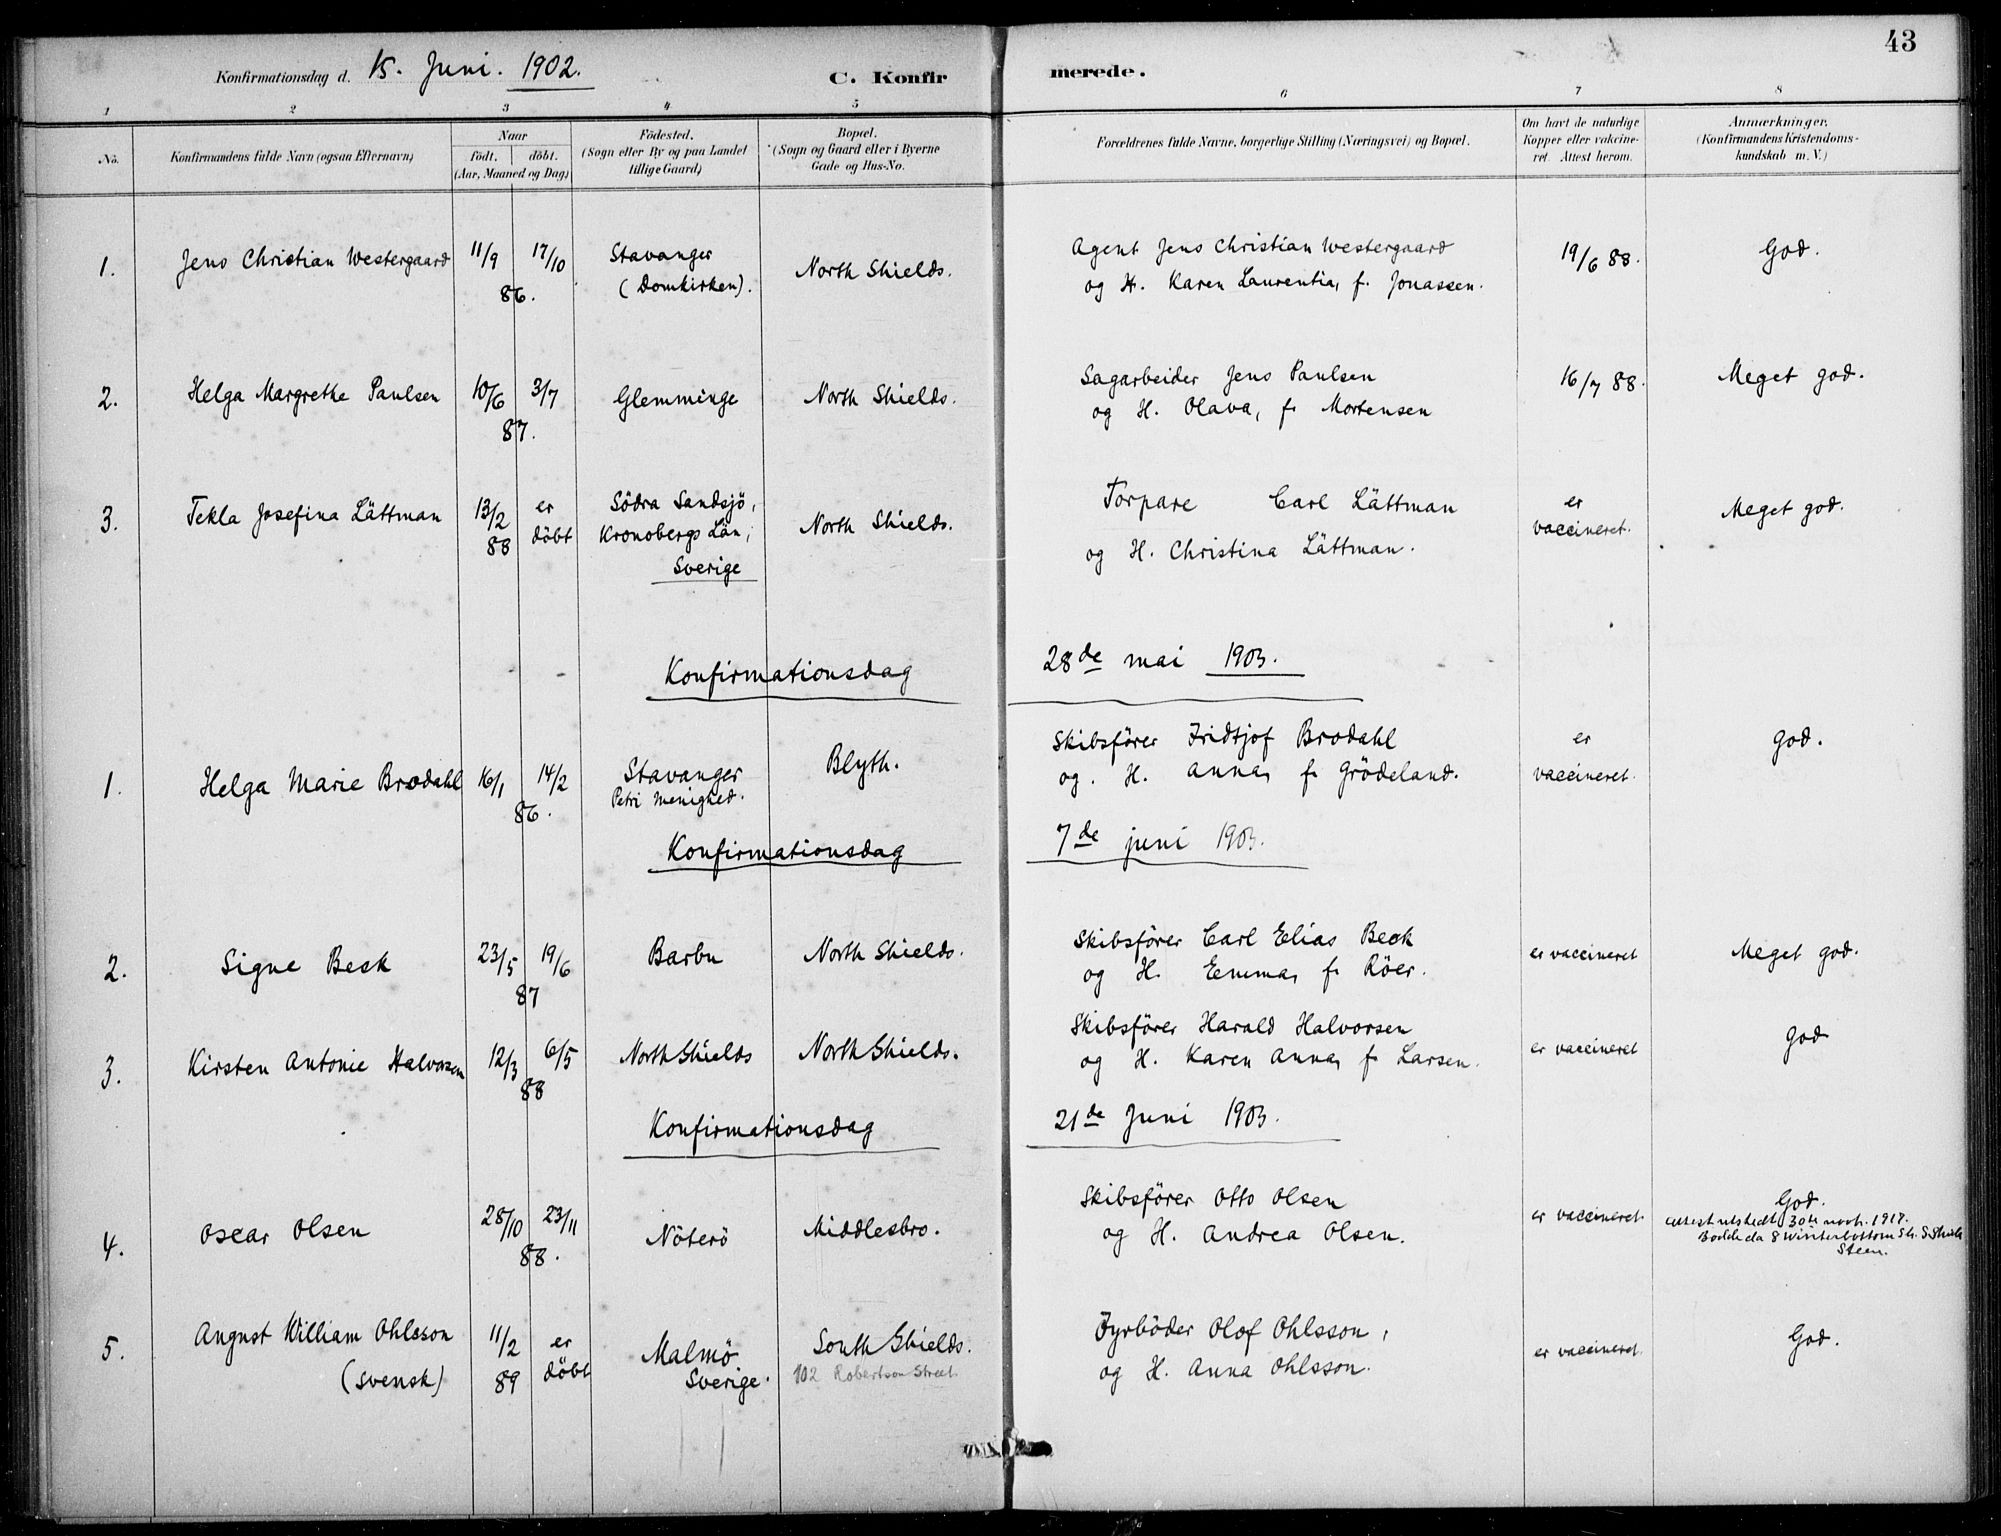 43
Konfirmationsdag d. 15. Juni. 1902.
C. Konfirmerede.
1 2 3 4 5 6 7 8
No. Konfirmandens fulde Navn (ogsaa Efternavn)
Naar
födt. döbt.
(Aar, Maaned og Dag)
Födested.
(Sogn eller By og paa Landet
tillige Gaard)
Bopæl.
(Sogn og Gaard eller i Byerne
Gade og Hus-No.
Forældrenes fulde Navne, borgerlige Stilling (Næringsvei) og Bopæl.
Om havt de naturlige
Kopper eller vakcine-
ret. Attest herom.
Anmærkninger.
(Konfirmandens Kristendoms-
kundskab m. V.)
1. Jens Christian Westergaard 11/9 17/10
86.
Stavanger
(Domkirken).
North Shields.
Agent Jens Christian Westergaard
og H. Karen Laurentia, f. Jonassen.
19/6 88.
God.
2. Helga Margrethe Paulsen 10/6 3/7
87.
Glemminge
North Shields.
Sagarbeider Jens Paulsen
og H. Olava, f. Mortensen
16/7 88.
Meget god.
3. Tekla Josefina Lättman 13/2 er
88 döbt
Södra Sandsjö,
Kronobergs Län,
Sverige
North Shields.
Torpare Carl Lättman
og H. Christina Lättman.
er
vaccineret.
Meget god.
Konfirmationsdag 28de mai 1903.
1. Helga Marie Brodahl 16/1 14/2
86.
Stavanger
Petri Menighed.
Blyth.
Skibsförer Fridtjof Brodahl
og. H. Anna, f. Grödeland.
er
vaccineret.
God.
Konfirmationsdag 7de juni 1903.
2. Signe Beck 23/5 19/6
87
Barbu
North Shields.
Skibsförer Carl Elias Beck
og H. Emma, f. Röer.
er vaccineret
Meget god.
3. Kirsten Antonie Halvorsen 12/3 6/5
88
North Shields
North Shields.
Skibsförer Harald Halvorsen
og H. Karen Anna, f. Larsen.
er vaccineret
God
Konfirmationsdag 21de Juni 1903.
4. Oscar Olsen 28/10 23/11
88.
Nöterö
Middlesbro.
Skibsförer Otto Olsen
og H. Andrea Olsen.
er vaccineret.
God.
Attest utstedt 30te novb. 1917.
Bodde da 8 Winterbottom Str. S. Shields
Steen.
5. August William Ohlsson
(svensk)
11/2 er
89 döbt
Malmö
Sverige.
South Shields.
102 Robertson Street
Fyrböder Olof Ohlsson,
og H. Anna Ohlsson.
er vaccineret.
God.